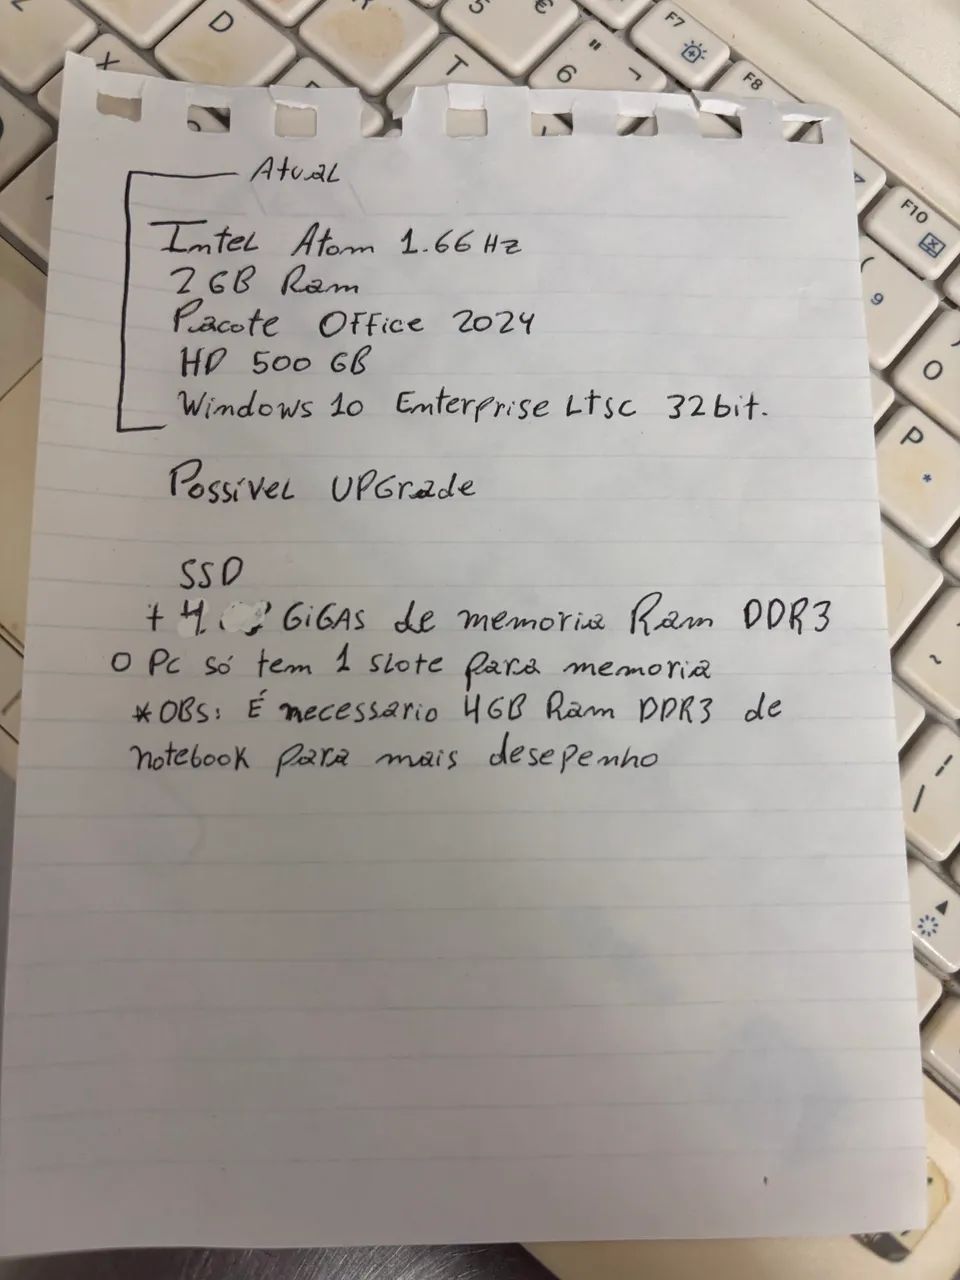 Atual
Intel Atom 1.66 Hz
2 GB Ram
Pacote Office 2024
HD 500 GB
Windows 10 Enterprise Ltsc 32bit.
Possível UPGrade
SSD
+ 4 GiGAS de memoria Ram DDR3
O Pc só tem 1 slote para memoria
*OBS: É necessario 4GB Ram DDR3 de
notebook para mais desepenho
F7
F8
F10
D
X
T
5
€
"
6
¬
(
9
)
O
P
*
~
/